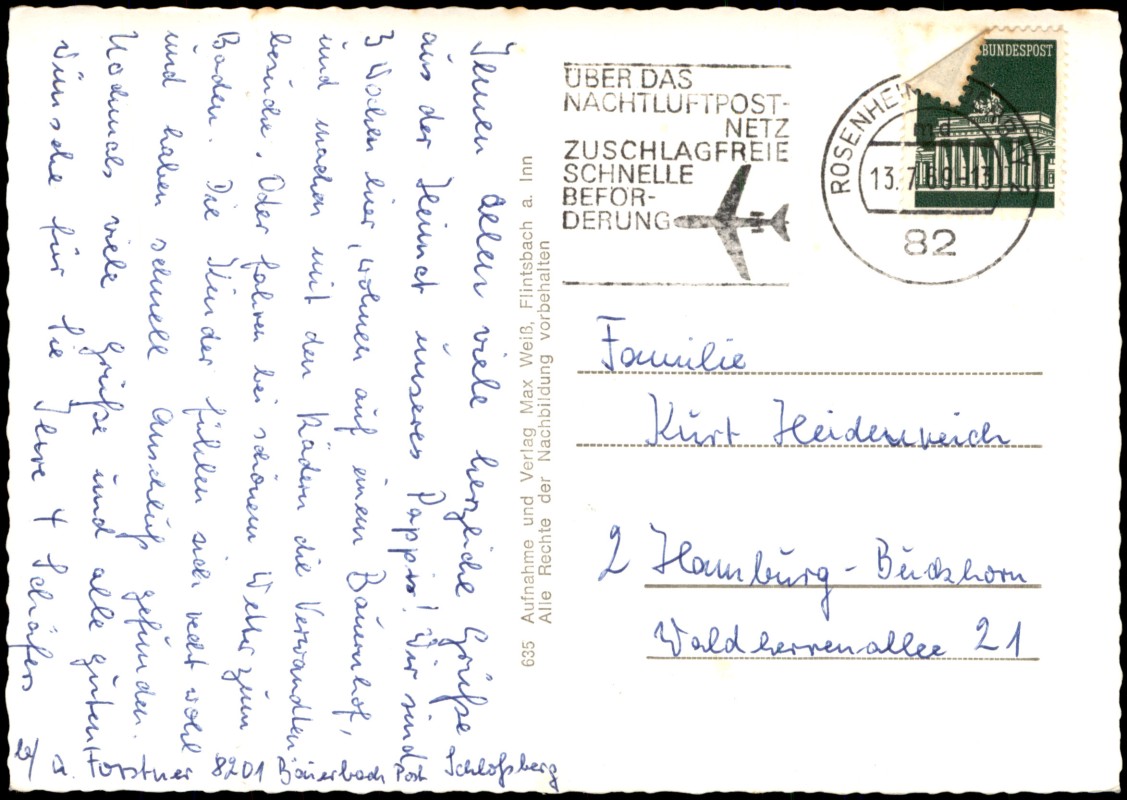 Ihnen allen viele herzliche Grüße
aus der Heimat unseres Pappis! Wir sind
3 Wochen hier, wohnen auf einem Bauernhof,
und machen mit den Rädern die Verwandten-
besuche. Oder fahren bei schönem Wetter zum
Baden. Die Kinder fühlen sich recht wohl
und haben schnell Anschluß gefunden.
Nochmals viele Grüße und alle guten
Wünsche für Sie Ihre 4 Schäfers
Forstner 8201 Baierbach Post Schloßberg
635 Aufnahme und Verlag Max Weiß, Flintsbach a. Inn
Alle Rechte der Nachbildung vorbehalten
ÜBER DAS
NACHTLUFTPOST-
NETZ
ZUSCHLAGFREIE
SCHNELLE
BEFÖR-
DERUNG
ROSENHEIM
md
13.7.69-13
82
BUNDESPOST
Familie
Kurt Heidenreich
2 Hamburg-Buckhorn
Waldherrenallee 21